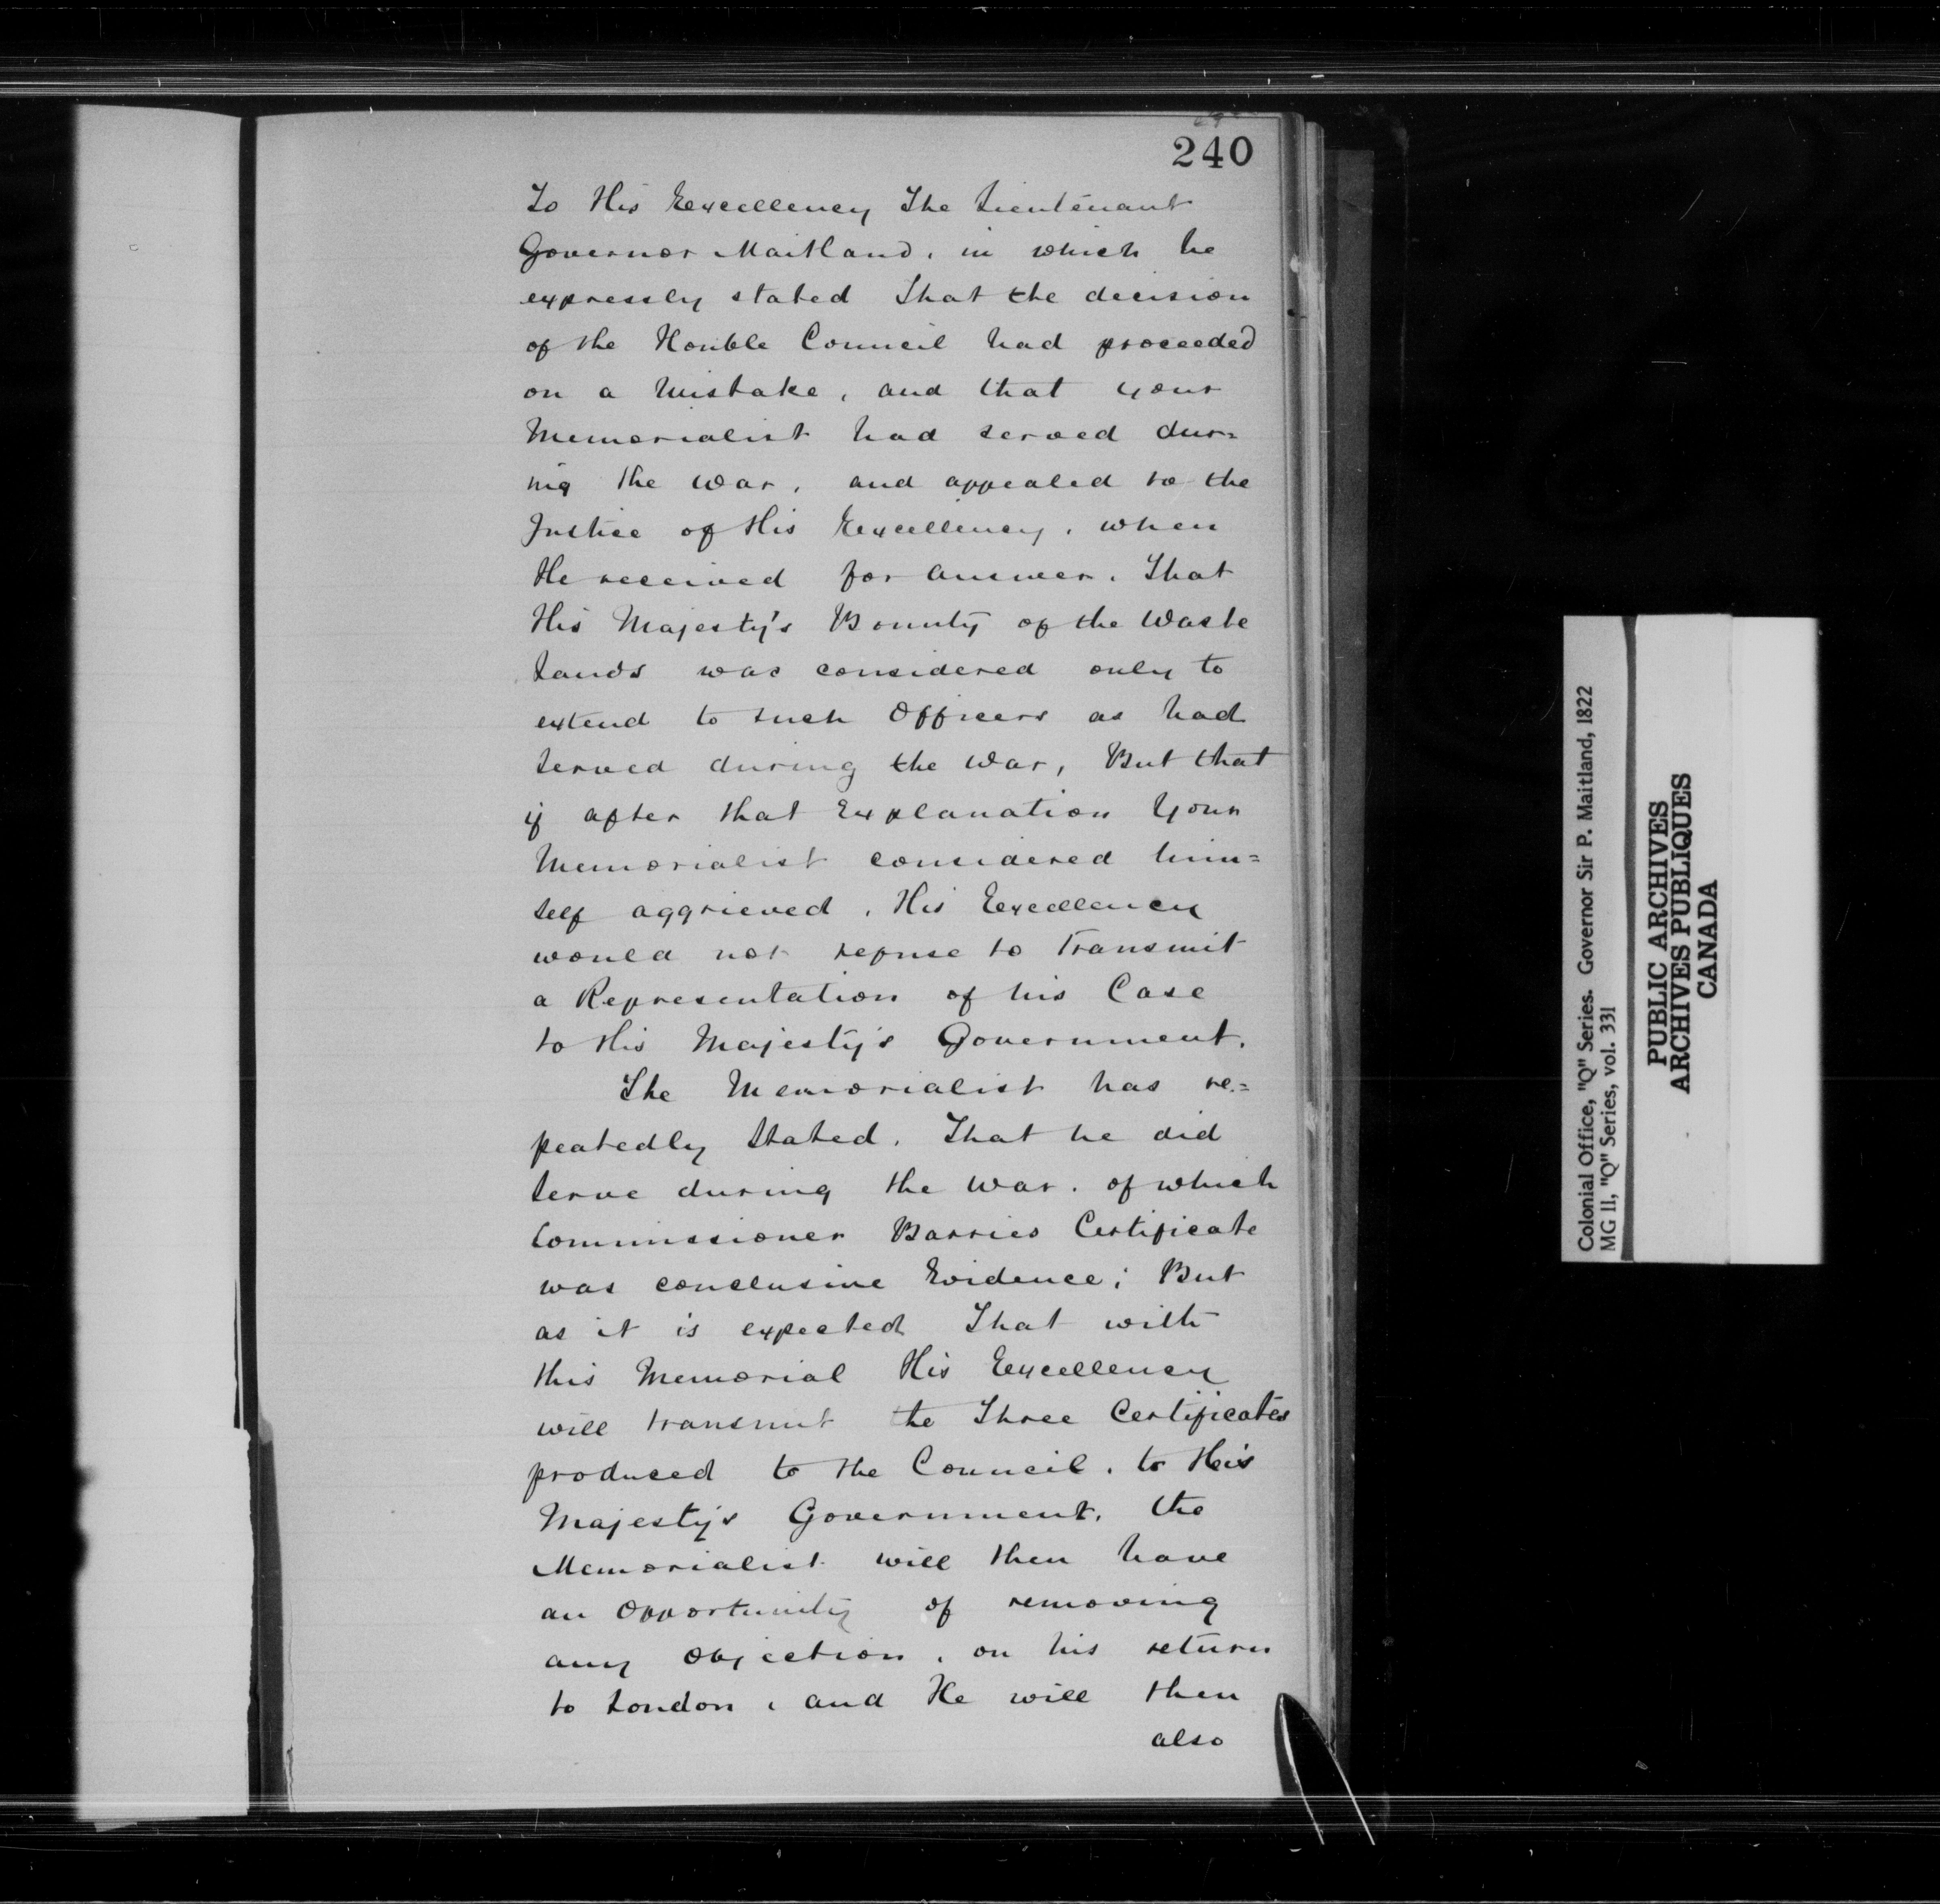 240
To His Excellency The Lieutenant
Governor Maitland, in which he
expressly stated That the decision
of the Honble Council had proceeded
on a Mistake, and that your
Memorialist had served dur=
ing the war, and appealed to the
Justice of His Excellency, when
He received for answer. That
His Majesty's Bounty of the Waste
Lands was considered only to
extend to such Officers as had
served during the War, But that
if after that Explanation Your
Memorialist considered him=
self aggrieved, His Excellency
would not refuse to Transmit
a Representation of his Case
to His Majesty's Government.
The Memorialist has re=
peatedly Stated, That he did
serve during the War, of which
Commissioner Barries Certificate
was conclusive Evidence; But
as it is expected That with
this Memorial His Excellency
will transmit the Three Certificates
produced to the Council, to His
Majesty's Government, the
Memorialist will then have
an Opportunity of removing
any Objection, on his return
to London, and He will then
also
Colonial Office, "Q" Series. Governor Sir P. Maitland, 1822
MG 11, "Q" Series, vol. 331
PUBLIC ARCHIVES
ARCHIVES PUBLIQUES
CANADA